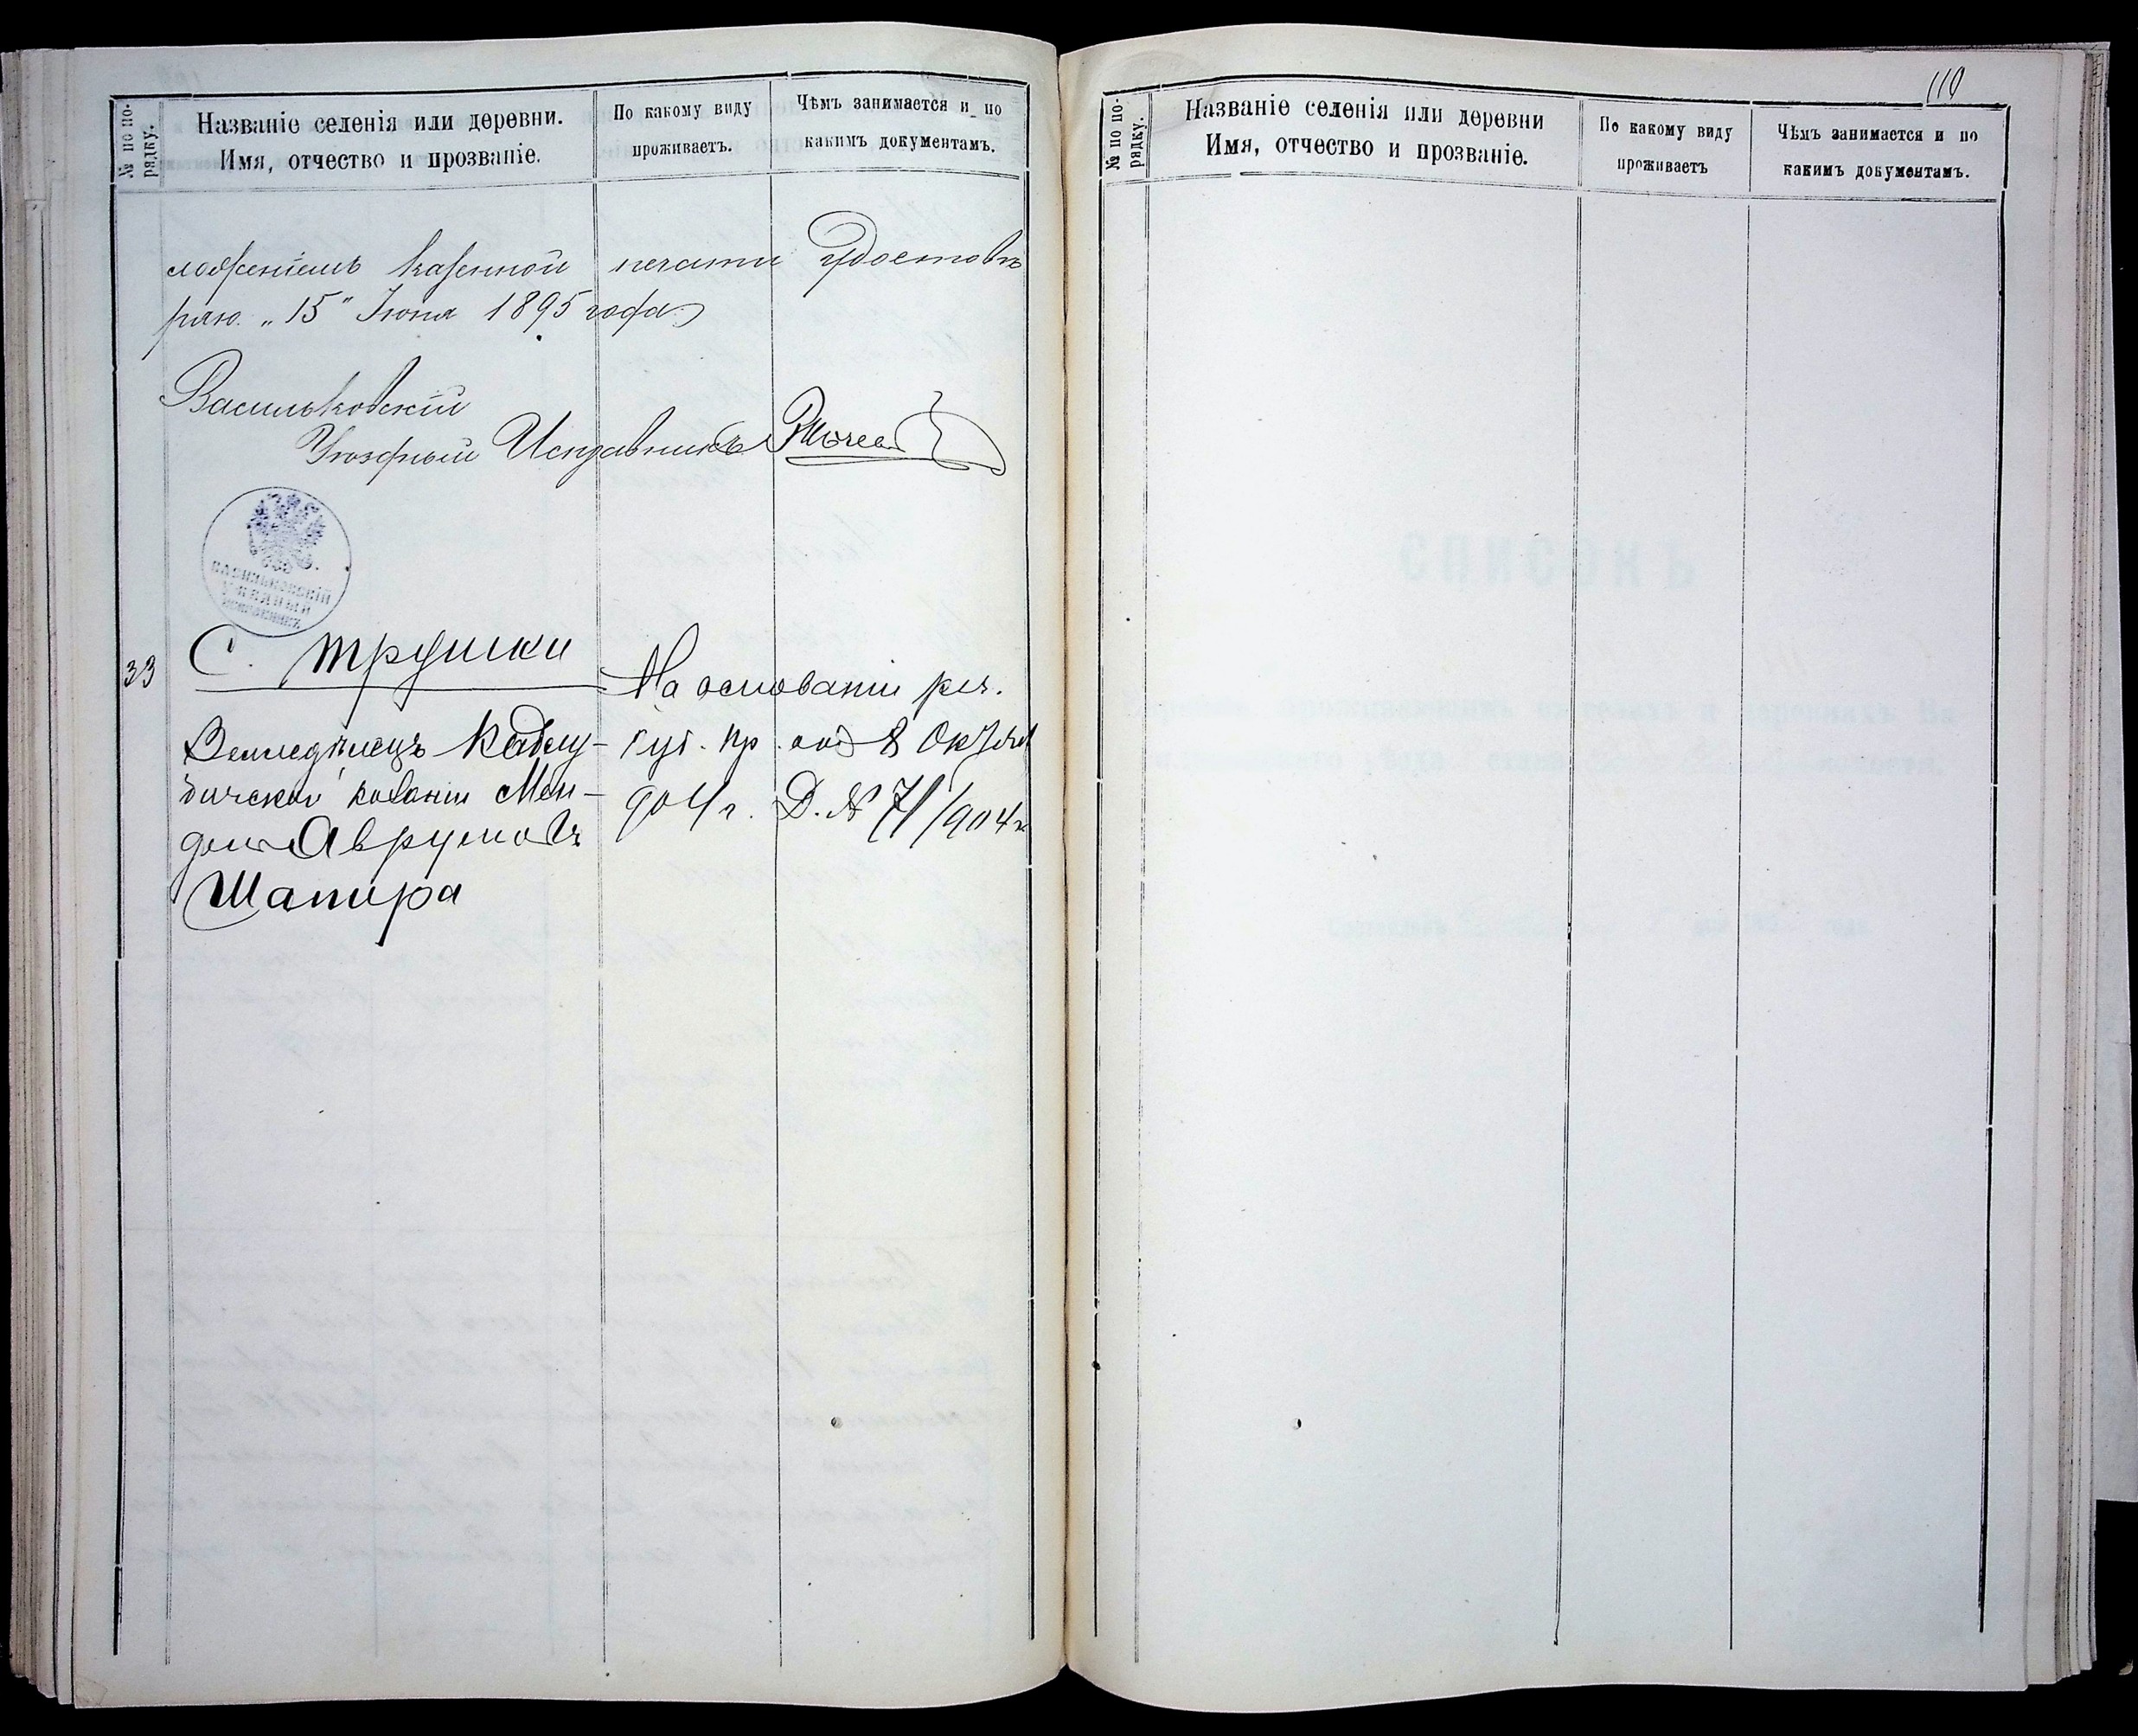 № по по-
рядку.
Названіе селенія или деревни.
Имя, отчество и прозваніе.
По какому виду
проживаетъ.
Чѣмъ занимается и по
какимъ документамъ.
ложеніемъ казенной печати удостовѣ
ряю. „15" Іюня 1895 года
Васильковскій
Уѣздный Исправникъ
Васильковскій
Уѣздный
33
С. Трушки
Земледѣлецъ Кадлу-
бичской колоніи Мен-
дель Аврумовъ
Шапира
На основаніи рез.
Губ. Пр. отъ 8 Октяб
904 г. Д. № 71/904 г
110
№ по по-
рядку.
Названіе селенія или деревни
Имя, отчество и прозваніе.
По какому виду
проживаетъ
Чѣмъ занимается и по
какимъ документамъ.